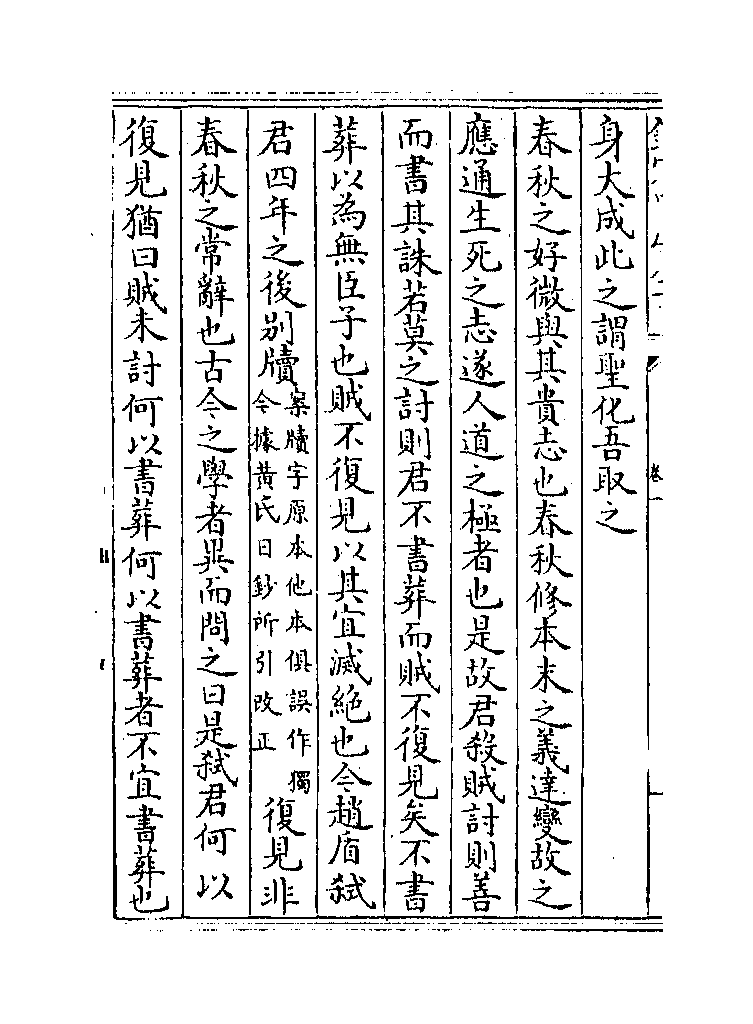 身大成此之謂聖化吾取之
春秋之好微與其貴志也春秋修本末之義達變故之
應通生死之志遂人道之極者也是故君殺賊討則善
而書其誅若莫之討則君不書葬而賊不復見矣不書
葬以為無臣子也賊不復見以其宜滅絶也今趙盾弑
君四年之後别牘案牘字原本他本俱誤作獨今據黄氏日鈔所引改正復見非
春秋之常辭也古今之學者異而問之曰是弑君何以
復見猶曰賊未討何以書葬何以書葬者不宜書葬也
卷一